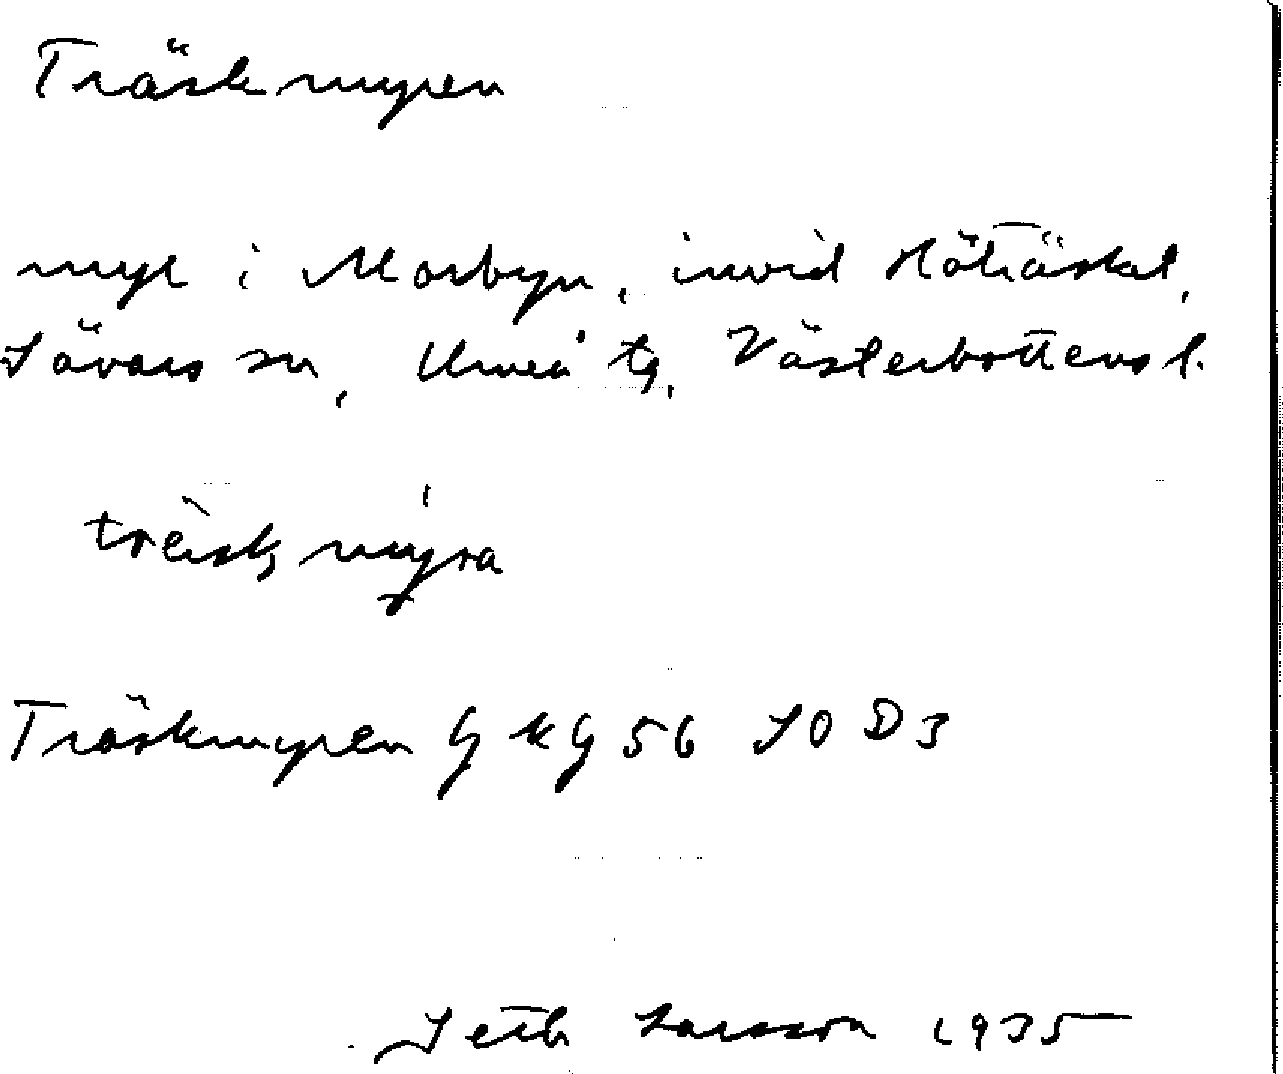 Träskmyren
myr i Morbyn, invid Hötjäskal,
Sävars sn, Umeå tg, Västerbottens l.
träskmyra
Träskmyren G K G 56 SO D3
Seth Larsson 1935